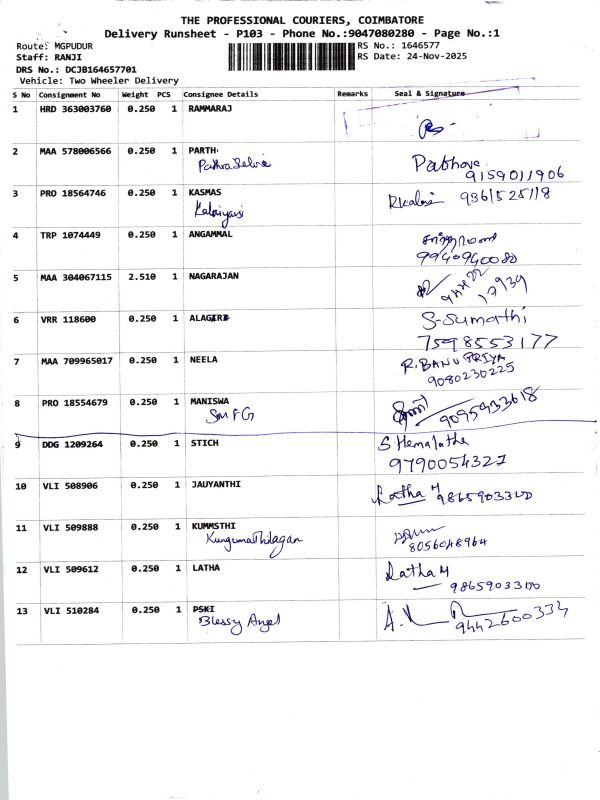 THE PROFESSIONAL COURIERS, COIMBATORE
Delivery Runsheet - P103 - Phone No.:9047080280 - Page No.:1
Route: MGPUDUR RS No.: 1646577
Staff: RANJI RS Date: 24-Nov-2025
DRS No.: DCJB164657701
Vehicle: Two Wheeler Delivery
S No Consignment No Weight PCS Consignee Details Remarks Seal & Signature
1 HRD 363003760 0.250 1 RAMMARAJ
2 MAA 578006566 0.250 1 PARTH Pabhova
9159011906
3 PRO 18564746 0.250 1 KASMAS 9361525118
4 TRP 1074449 0.250 1 ANGAMMAL
9940940080
5 MAA 304067115 2.510 1 NAGARAJAN
6 VRR 118600 0.250 1 S-Sumathi
7598553177
7 MAA 709965017 0.250 1 NEELA R.BANU PRIYA
9080230225
8 PRO 18554679 0.250 1 MANISWA
9 DDG 1209264 0.250 1 STICH S Hemalatha
9790054327
10 VLI 508906 0.250 1 JAUYANTHI Latha M 9865903300
11 VLI 509888 0.250 1 KUMMSTHI
Kungumathilagan 8056048964
12 VLI 509612 0.250 1 LATHA Latha M
9865903300
13 VLI 510284 0.250 1 PSKI
Blessy Angel 9442600334